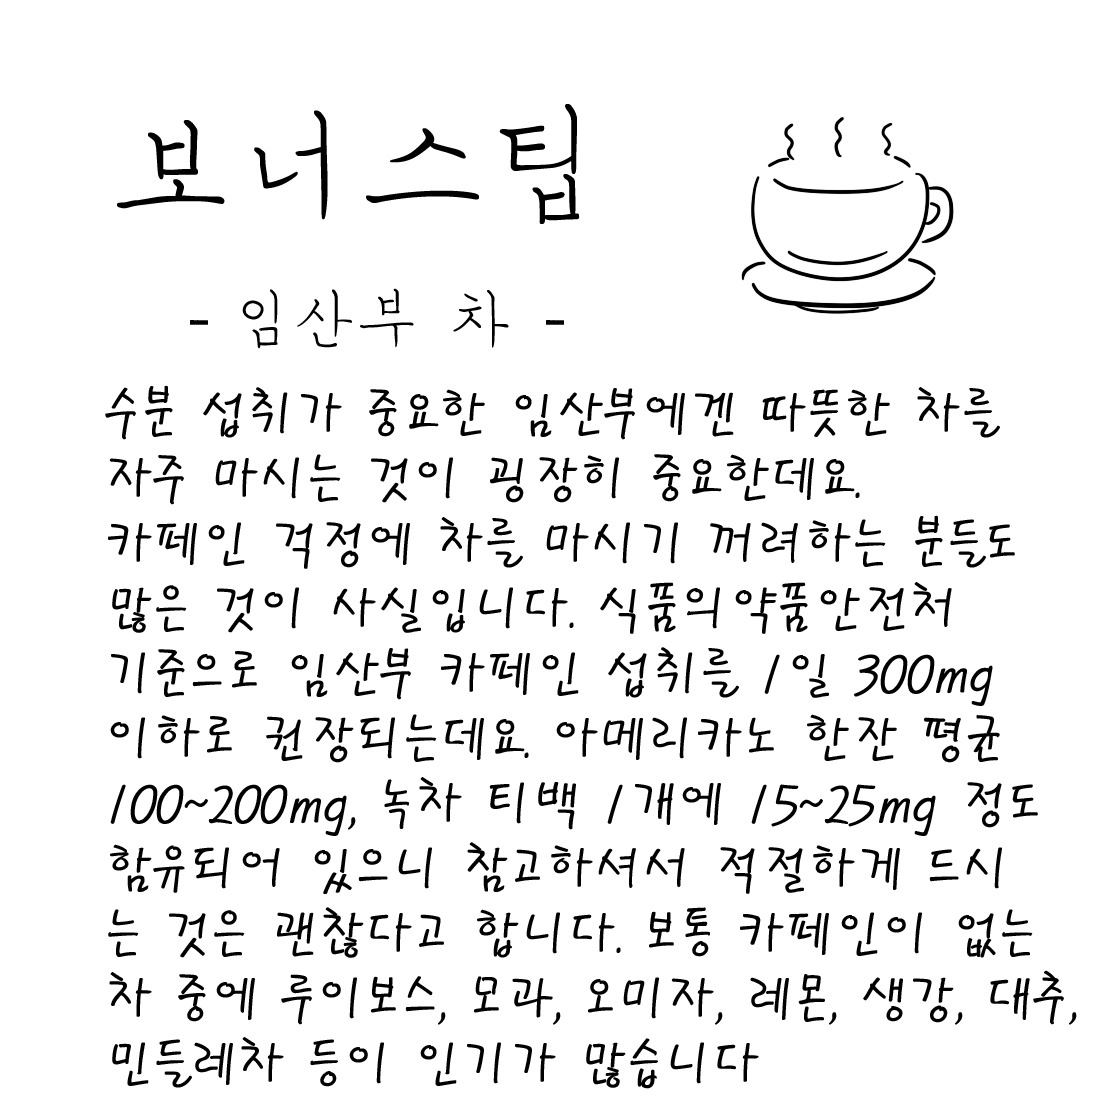 보너스팁
- 임산부 차 -
수분 섭취가 중요한 임산부에겐 따뜻한 차를
자주 마시는 것이 굉장히 중요한데요.
카페인 걱정에 차를 마시기 꺼려하는 분들도
많은 것이 사실입니다. 식품의약품안전처
기준으로 임산부 카페인 섭취를 1일 300mg
이하로 권장되는데요. 아메리카노 한잔 평균
100~200mg, 녹차 티백 1개에 15~25mg 정도
함유되어 있으니 참고하셔서 적절하게 드시
는 것은 괜찮다고 합니다. 보통 카페인이 없는
차 중에 루이보스, 모과, 오미자, 레몬, 생강, 대추,
민들레차 등이 인기가 많습니다